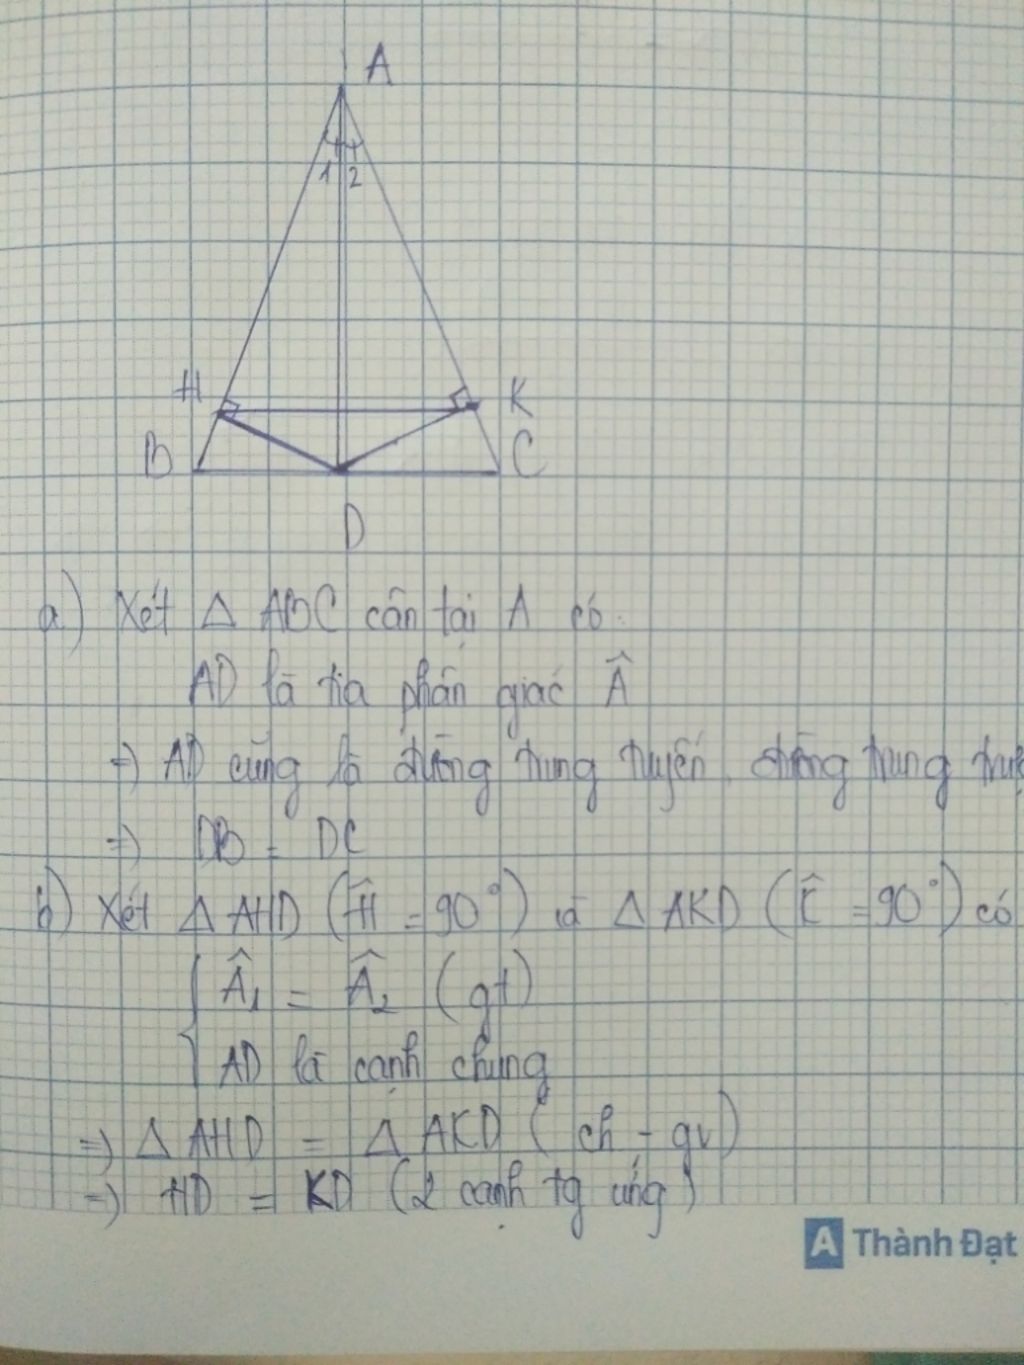 A
1 2
H
K
B
C
D
a) Xét △ ABC cân tại A có
AD là tia phân giác Â
=) AD cũng là đường trung tuyến, đường trung
=) DB = DC
b) Xét △ AHD (Ĥ = 90°) và △ AKD ( = 90°) có
Â₁ = Â₂ (gt)
AD là cạnh chung
=) △ AHD = △ AKD ( ch - gv)
=) HD = KD (2 cạnh tg ứng)
A Thành Đạt